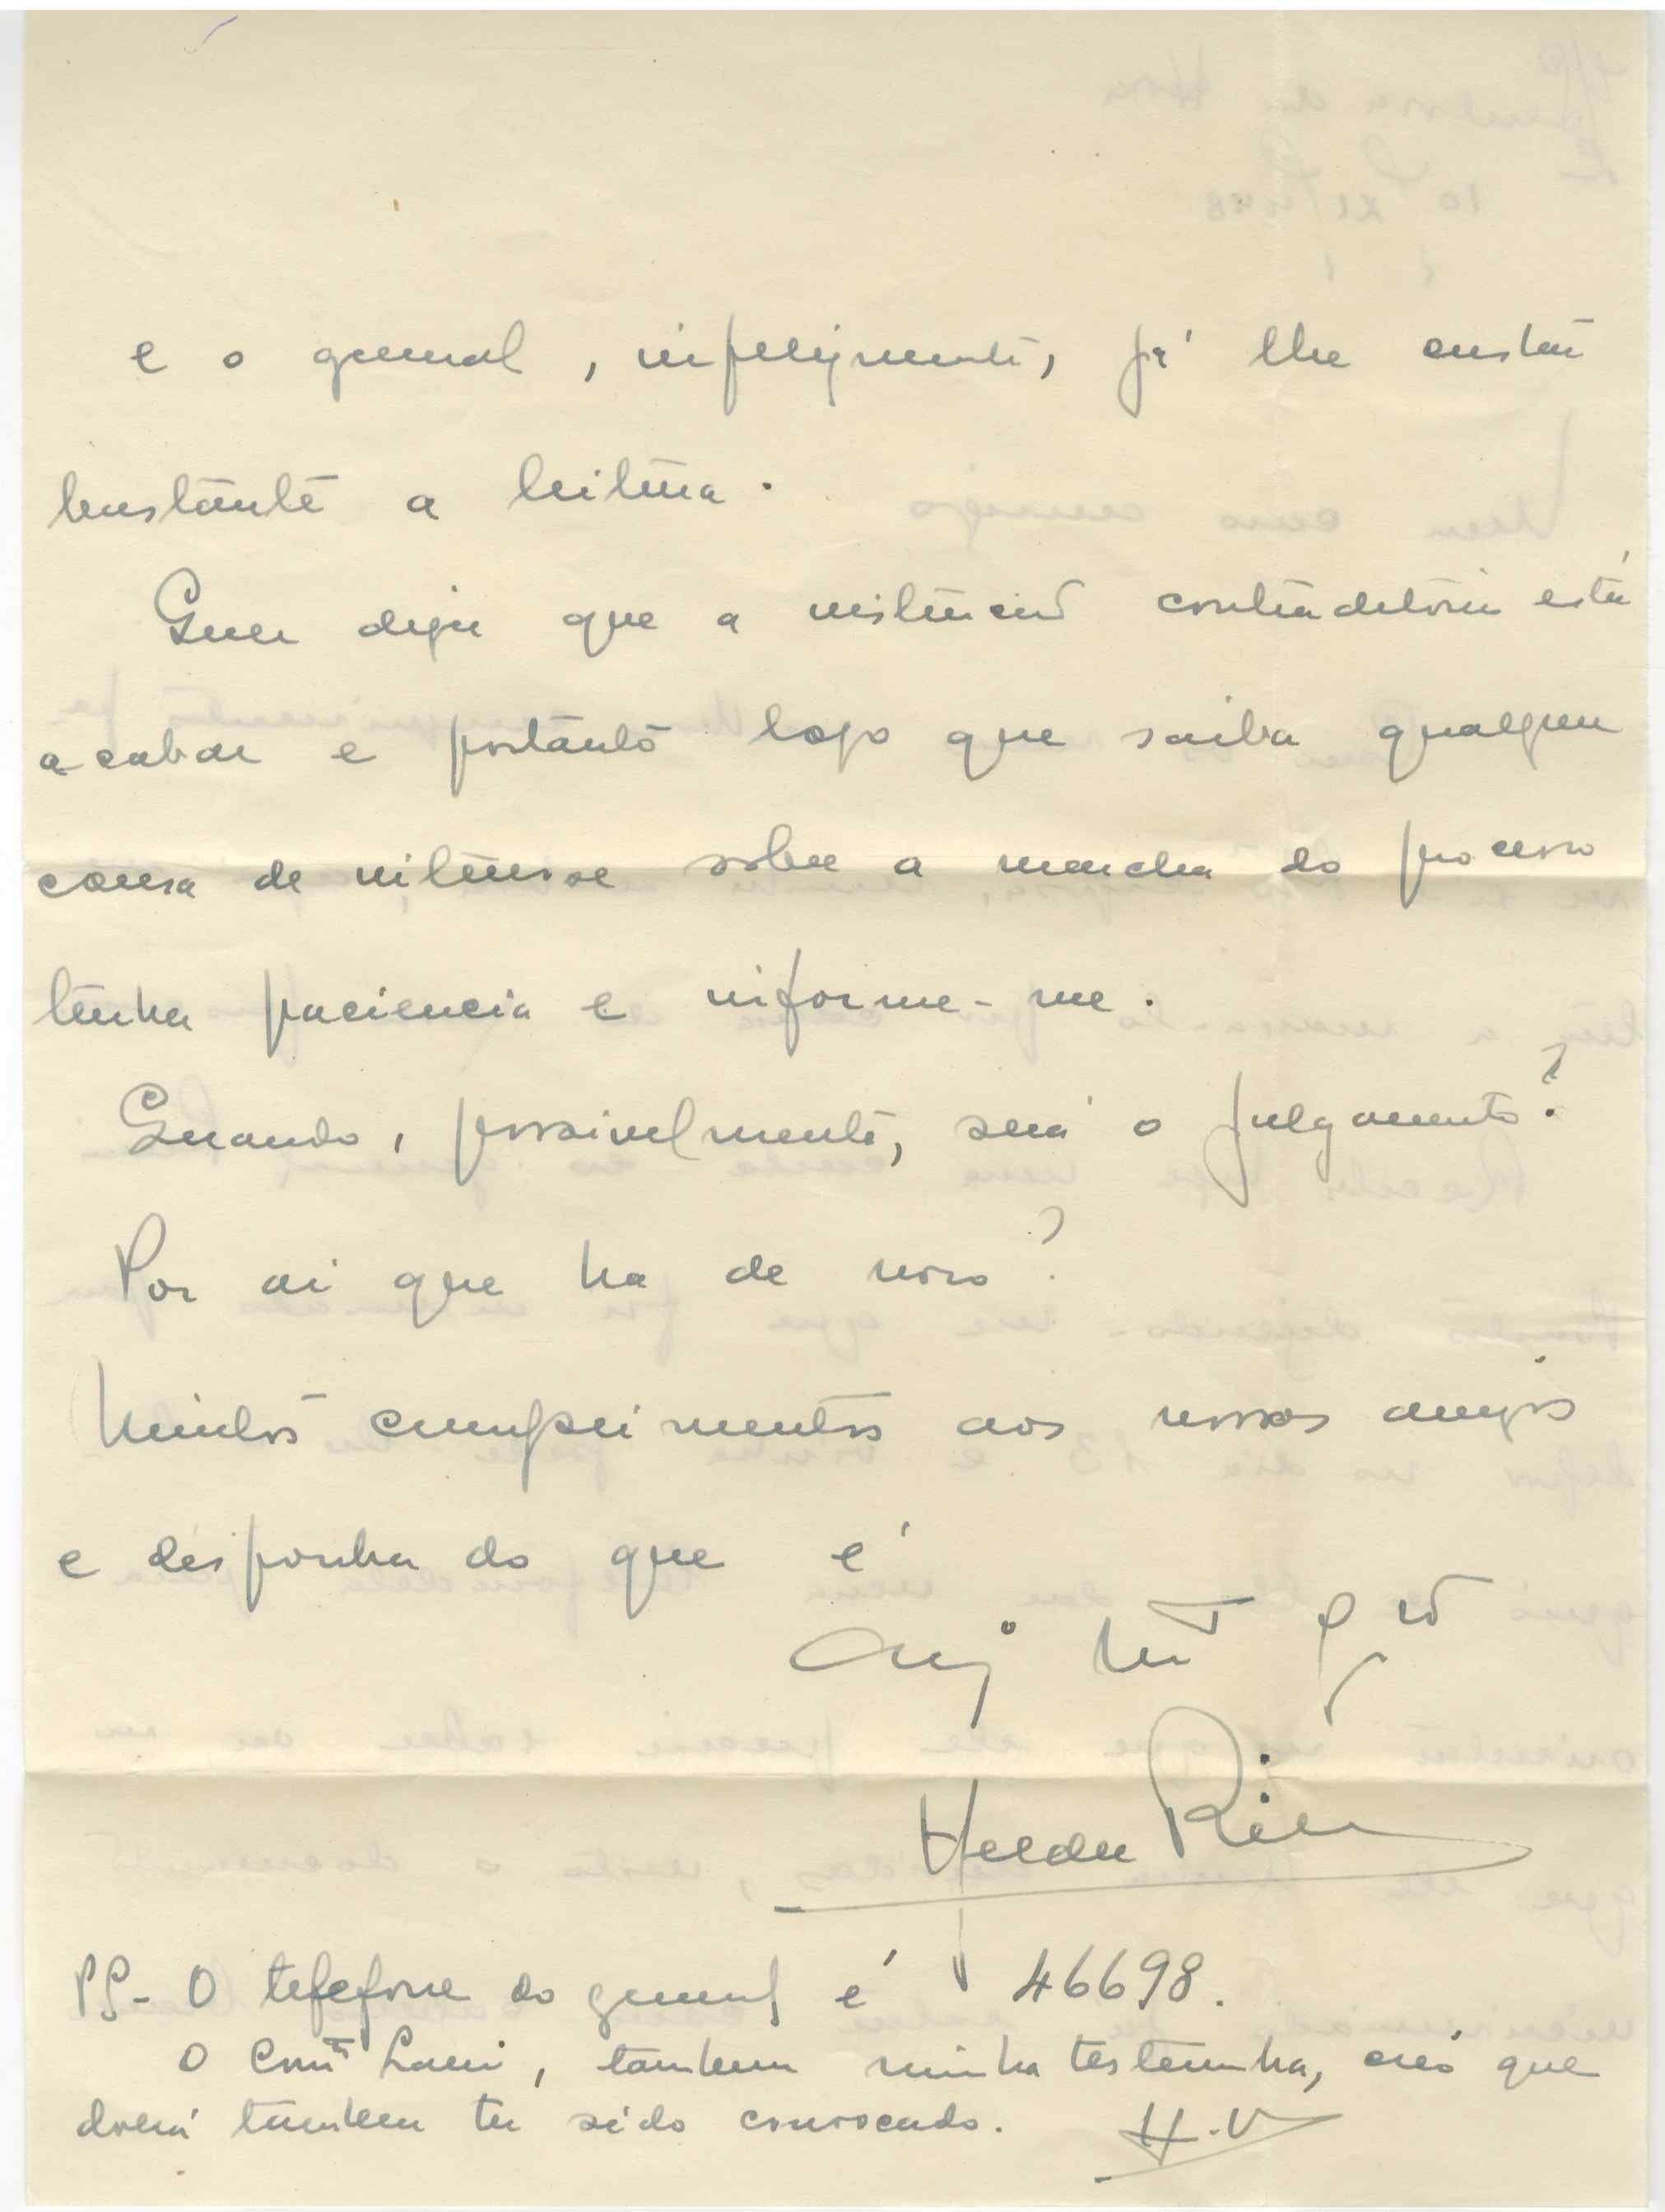 e o general, infelizmente, já lhe custa
bastante a leitura.
Quer dizer que a instrução contraditoria está
a acabar e portanto logo que saiba qualquer
cousa de interesse sobre a marcha do processo
tenha paciencia e informe-me.
Quando, possivelmente, será o julgamento?
Por ai que ha de novo?
Muitos cumprimentos aos nossos amigos
e desponha do que é
Amº Mtº Gto
Helder Ribeiro
PS- O telefone do general é 46698.
O Comte , tambem minha testemunha, creo que
deverá tambem ter sido convocado.